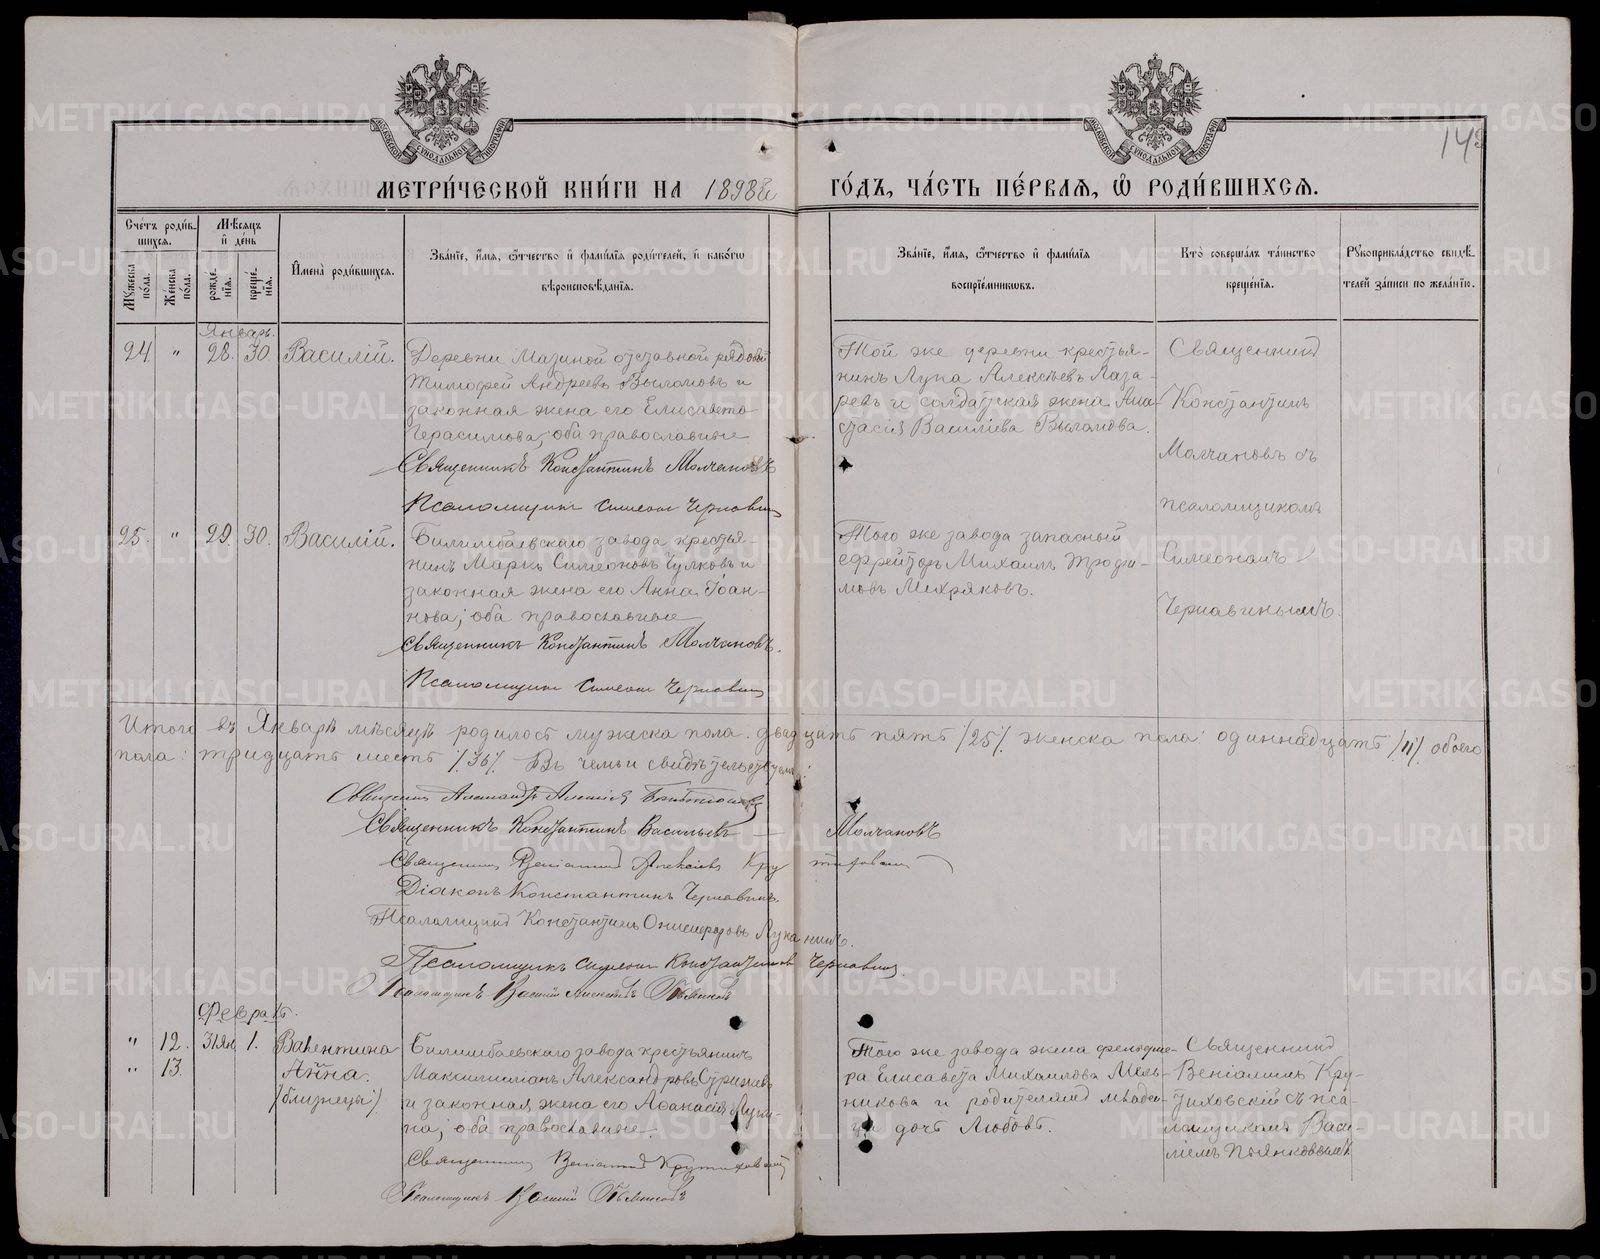 МЕТРИ́ЧЕСКОЙ КНИ́ГИ НА 1898й ГО́ДЪ, ЧА́СТЬ ПЕ́РВАЯ, Ѡ҆ РОДИ́ВШИХСЯ.
Сче́тъ роди́в-
шихся.
Му́жеска
по́ла.
Же́нска
по́ла.
Мѣ́сяцъ
и҆ де́нь
рожде́-
нїя.
креще́-
нїя.
И҆мена̀ роди́вшихся.
Зва́нїе, и҆́мя, ѻ҆́тчество и҆ фами́лїя роди́телей, и҆ како́гѡ
вѣроисповѣ́данїя.
Зва́нїе, и҆́мя, ѻ҆́тчество и҆ фами́лїя
воспрїе́мниковъ.
Кто̀ соверша́лъ та́инство
креще́нїя.
Рꙋкоприкла́дство свидѣ́-
телей за́писи по жела́нїю.
Январь.
24. " 28. 30. Василій.
Деревни Мазиной отставной рядовой
Тимофей Андреевъ Выломовъ и
законная жена его Елисавета
Герасимова; оба православные
Священникъ Константинъ Молчановъ
Псаломщикъ Симеонъ Чернавинъ
Той же деревни крестья-
нинъ Лука Алексѣевъ Лаза-
ревъ и солдатская жена Ана-
стасія Василіева Выломова.
Священникъ
Константинъ
Молчановъ съ
псаломщикомъ
Симеономъ
Чернавинымъ.
25. " 29. 30. Василій.
Билимбаевскаго завода крестья-
нинъ Маркъ Симеоновъ Чулковъ и
законная жена его Анна Іоан-
нова; оба православные
Священникъ Константинъ Молчановъ.
Псаломщикъ Симеонъ Чернавинъ
Того же завода запасный
ефрейторъ Михаилъ Трофи-
мовъ Мехряковъ.
Итого въ Январѣ мѣсяцѣ родилось мужеска пола: двадцать пять /25/. женска пола: одиннадцать /11/ обоего
пола: тридцать шесть /36/. Въ чемъ и свидѣтельствуемъ:
Священникъ Александръ Алексѣевъ
Священникъ Константинъ Васильевъ — Молчановъ
Священникъ Веніаминъ Алексѣевъ Крутиховскій
Діаконъ Константинъ Чернавинъ.
Псаломщикъ Константинъ Онисифоровъ Луканинъ.
Псаломщикъ Симеонъ Константиновъ Чернавинъ.
Псаломщикъ Василій Алексѣевъ Пьянковъ
Февраль.
" 12. 31 Ян. 1. Валентина
" 13. Анна.
/близнецы/.
Билимбаевскаго завода крестьянинъ
Максимиліанъ Александровъ Стрижевъ
и законная жена его Афанасія Луки-
на; оба православные.
Священникъ Веніаминъ Крутиховскій
Псаломщикъ Василій Пьянковъ
Того же завода жена фельдше-
ра Елисавета Михаилова Мель-
никова и родителей младен-
ца дочь Любовь.
Священникъ
Веніаминъ Кру-
тиховскій съ пса-
ломщикомъ Васи-
ліемъ Пьянковымъ